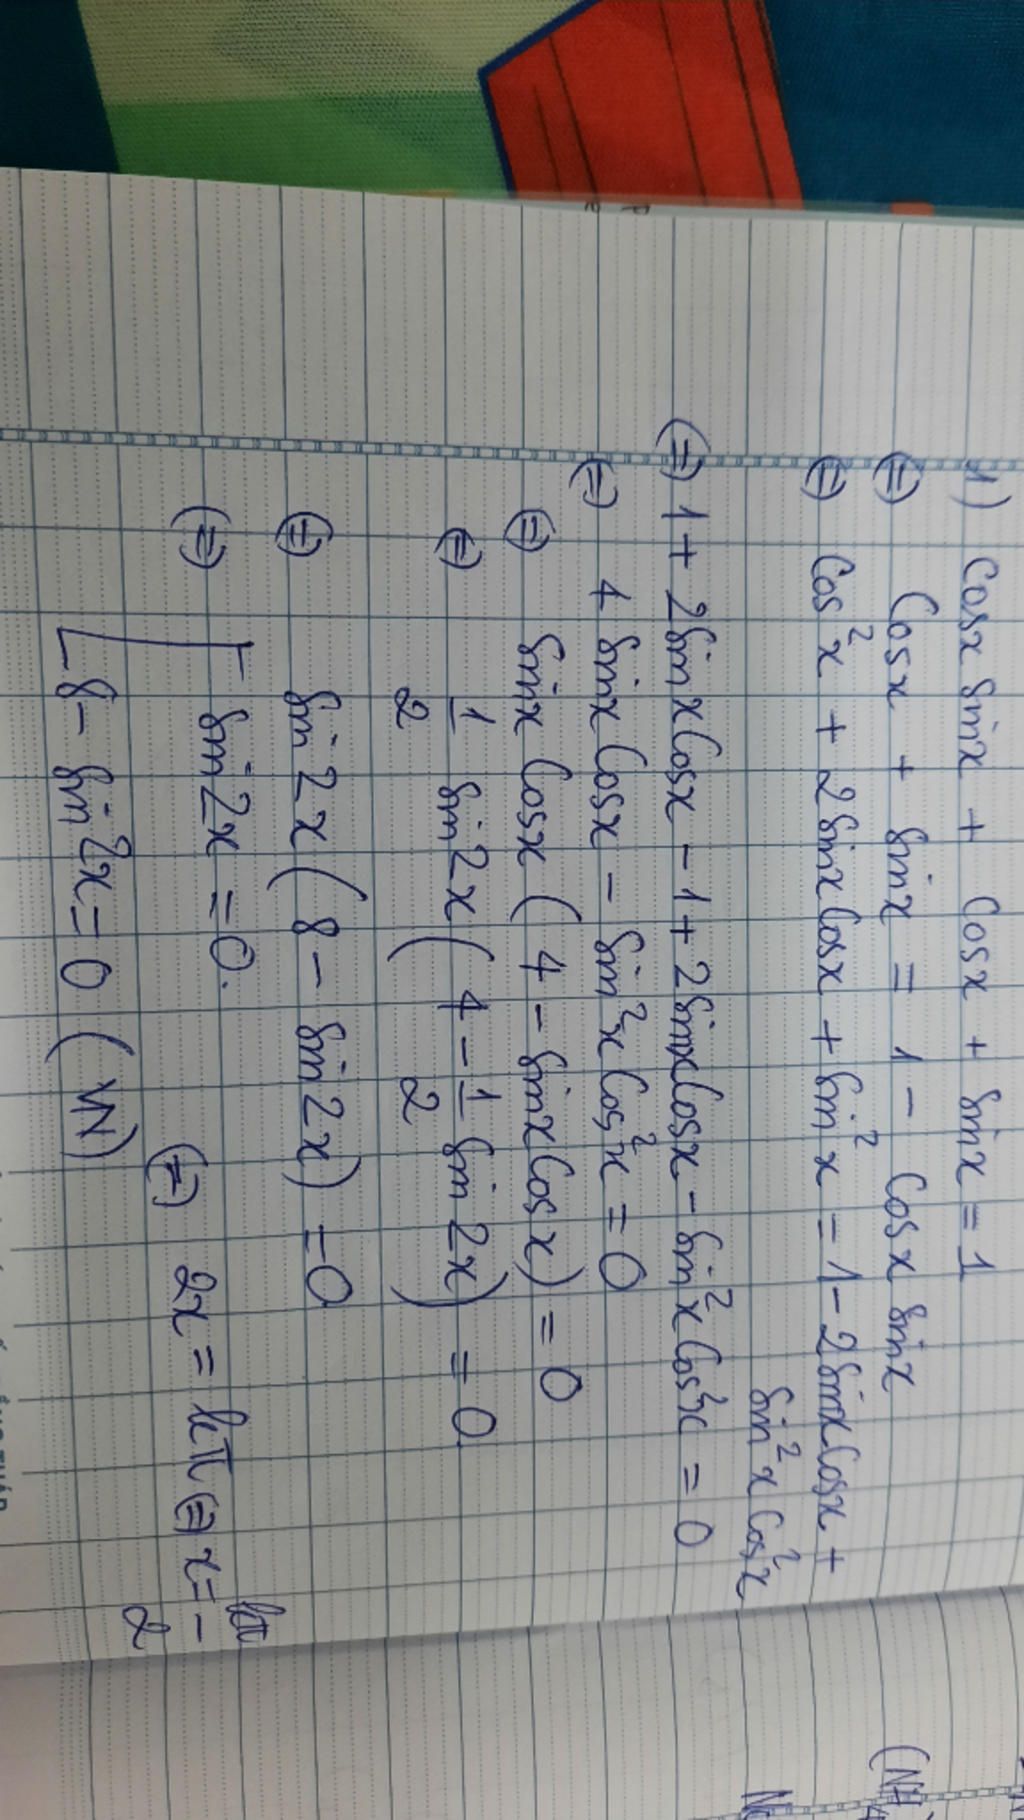 1) Cosx sinx + Cosx + sinx = 1
⇔ Cosx + sinx = 1 - Cosx sinx
⇔ Cos²x + 2sinxCosx + sin²x = 1 - 2sinxCosx +
sin²xCos²x
⇔ 1 + 2sinxCosx - 1 + 2sinxCosx - sin²xCos²x = 0
⇔ 4 sinxCosx - sin²xCos²x = 0
⇔ sinx Cosx (4 - sinxCosx) = 0
⇔ 1/2 sin2x (4 - 1/2 sin2x) = 0
⇔ sin2x (8 - sin2x) = 0
⇔ [ sin2x = 0. ⇔ 2x = kπ ⇔ x = kπ/2
[ 8 - sin2x = 0 (VN)
(NH